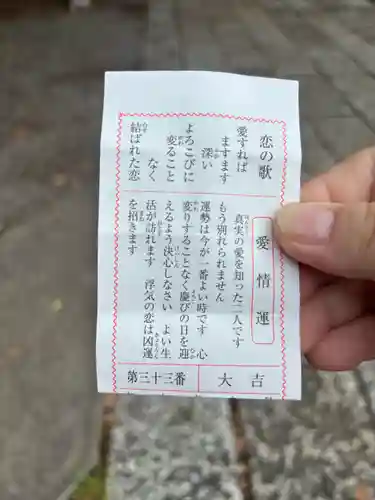 恋の歌
愛すれば
ますます
深い
よろこびに
変ること
なく
結ばれた恋
愛情運
真実の愛を知った二人です
もう別れられません
運勢は今が一番よい時です 心
変りすることなく慶びの日を迎
えるよう決心しなさい よい生
活が訪れます 浮気の恋は凶運
を招きます
大吉
第三十三番